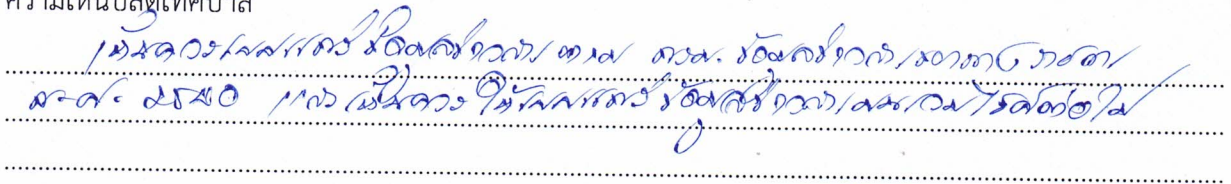 ความเห็นปลัดเทศบาล
เห็นควรเผยแพร่ข้อมูลข่าวสาร ตาม พรบ. ข้อมูลข่าวสารของทางราชการ
พ.ศ. 2540 และเห็นควรให้เผยแพร่ข้อมูลข่าวสาร